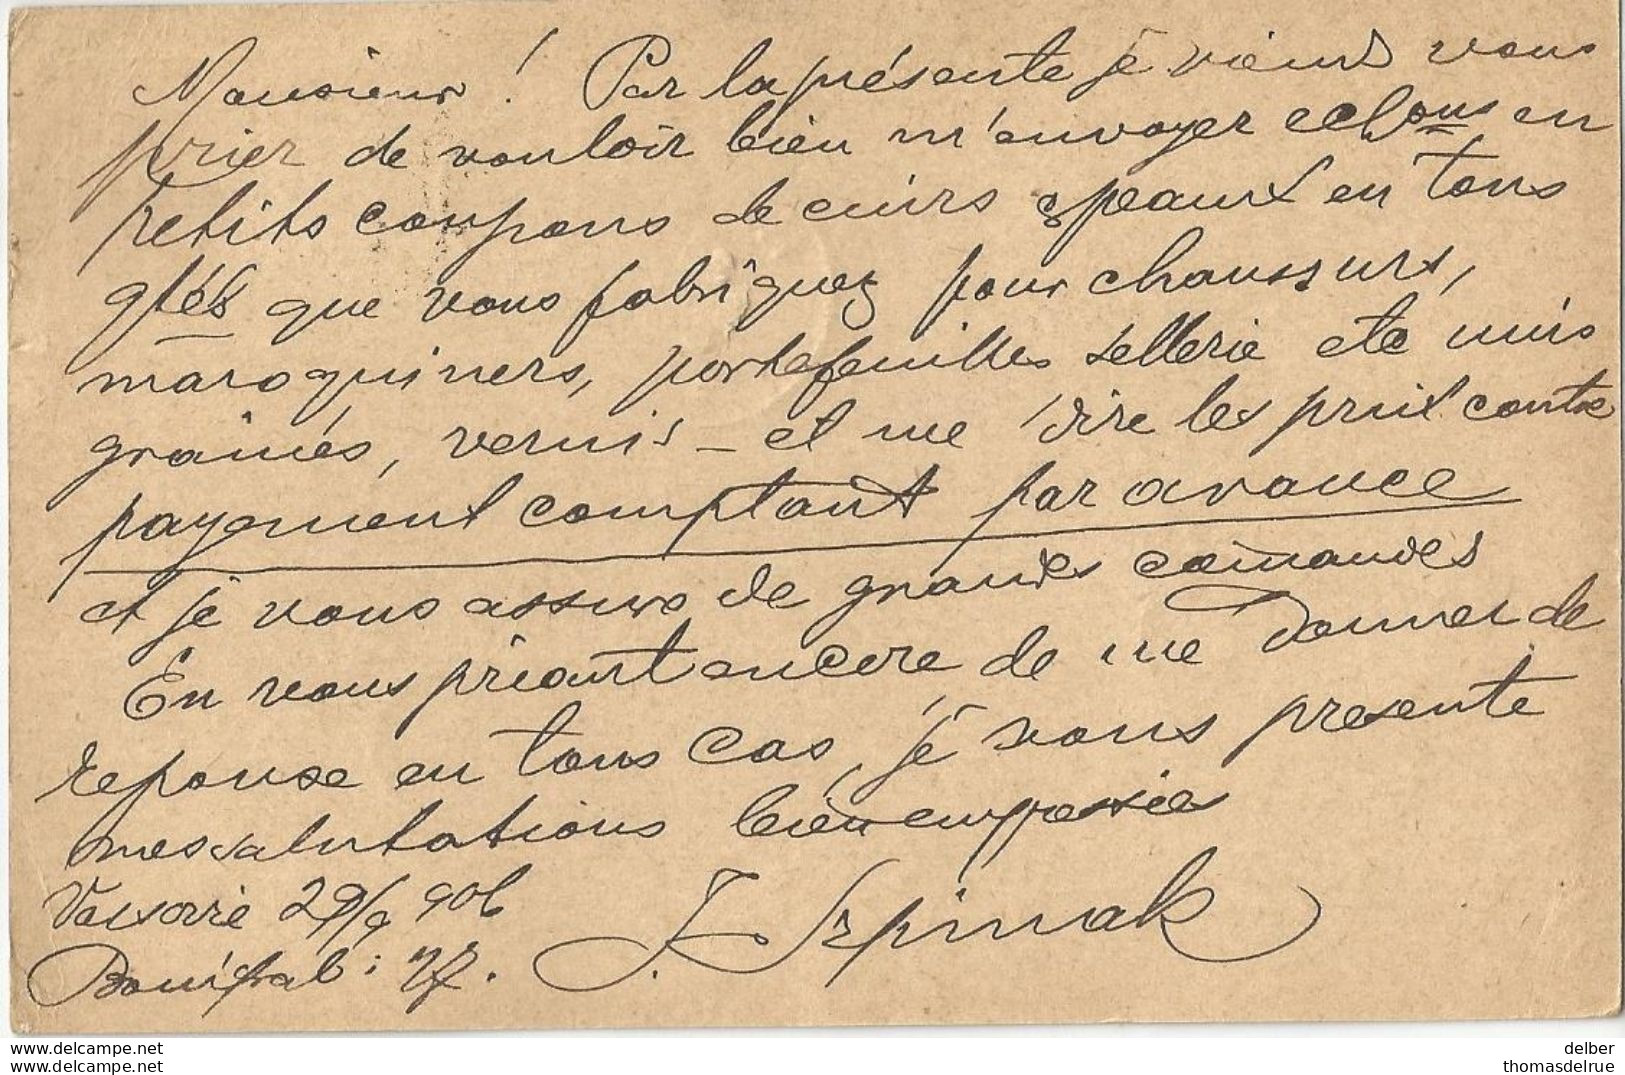 Monsieur ! Par la présente je viens vous
prier de vouloir bien m'envoyer echons en
petits coupons de cuirs & peaux en tous
qtés que vous fabriquez pour chaussurs,
maroquiners, portefeuilles sellerie etc unis
grainés, vernis – et me dire les prix contre
payement comptant par avance
et je vous assure de grandes comandes
En vous priant encore de me donner de
reponse en tous cas, je vous presente
mes salutations bien empressées
Varsovie 29/9 906
J. Szpinak
delber
thomasdelrue
www.delcampe.net